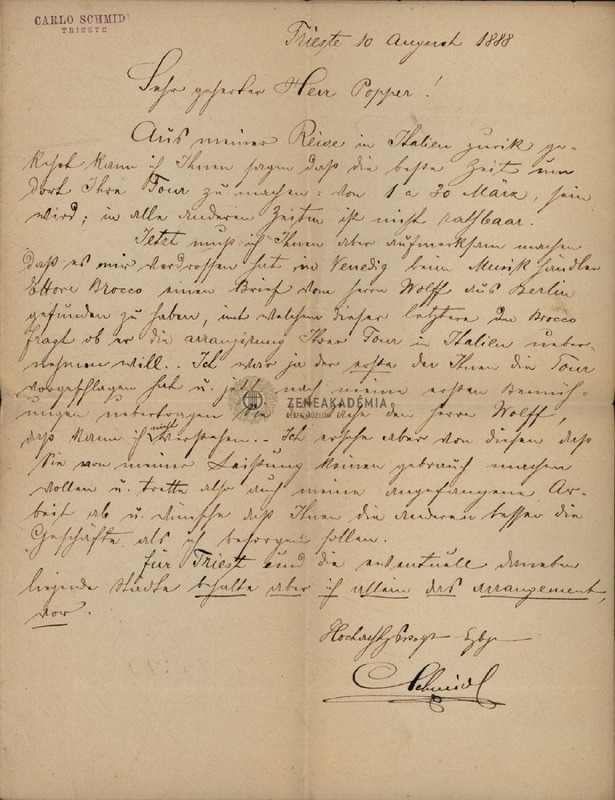 CARLO SCHMIDL
TRIESTE
Trieste 10 August 1888
Sehr geherter Herr Popper!
Aus meiner Reise in Italien zurik ge-
kehrt kann ich Ihnen sagen daß die beste Zeit um
dort Ihre Tour zu machen: von 1 a 30 März, sein
wird; in alle anderen Zeiten ist nicht rathbaar.
Jetzt muß ich Ihnen aber aufmerksam machen
daß es mir verdrossen hat in Venedig beim Musikhändler
Ettore Brocco einen Brief vom herrn Wolff aus Berlin
gefunden zu haben, mit welchem dieser letztere den Brocco
fragt ob er die arrangirung Ihrer Tour in Italien ueber
nehmen will.. Ich war ja der erste der Ihnen die Tour
vorgeschlagen hat u. jetzt nach meine ersten Bemüh-
ungen uebertragen Sie den herrn Wolff,
ZENEAKADÉMIA
LISZT MÚZEUM
daß kann ich nicht verstehen.. Ich ersehe aber von diesen daß
Sie von meiner Leistung keinen gebrauch machen
wollen u. trette also auch meine angefangene Ar-
beit ab u. wünsche daß Ihnen die anderen besser die
Geschäfte als ich besorgen sollen.
für Triest und die eventuell daneben
liegende Städte behalte aber ich allein das arrangement,
vor.
Hochachtungsvoll
CSchmidl